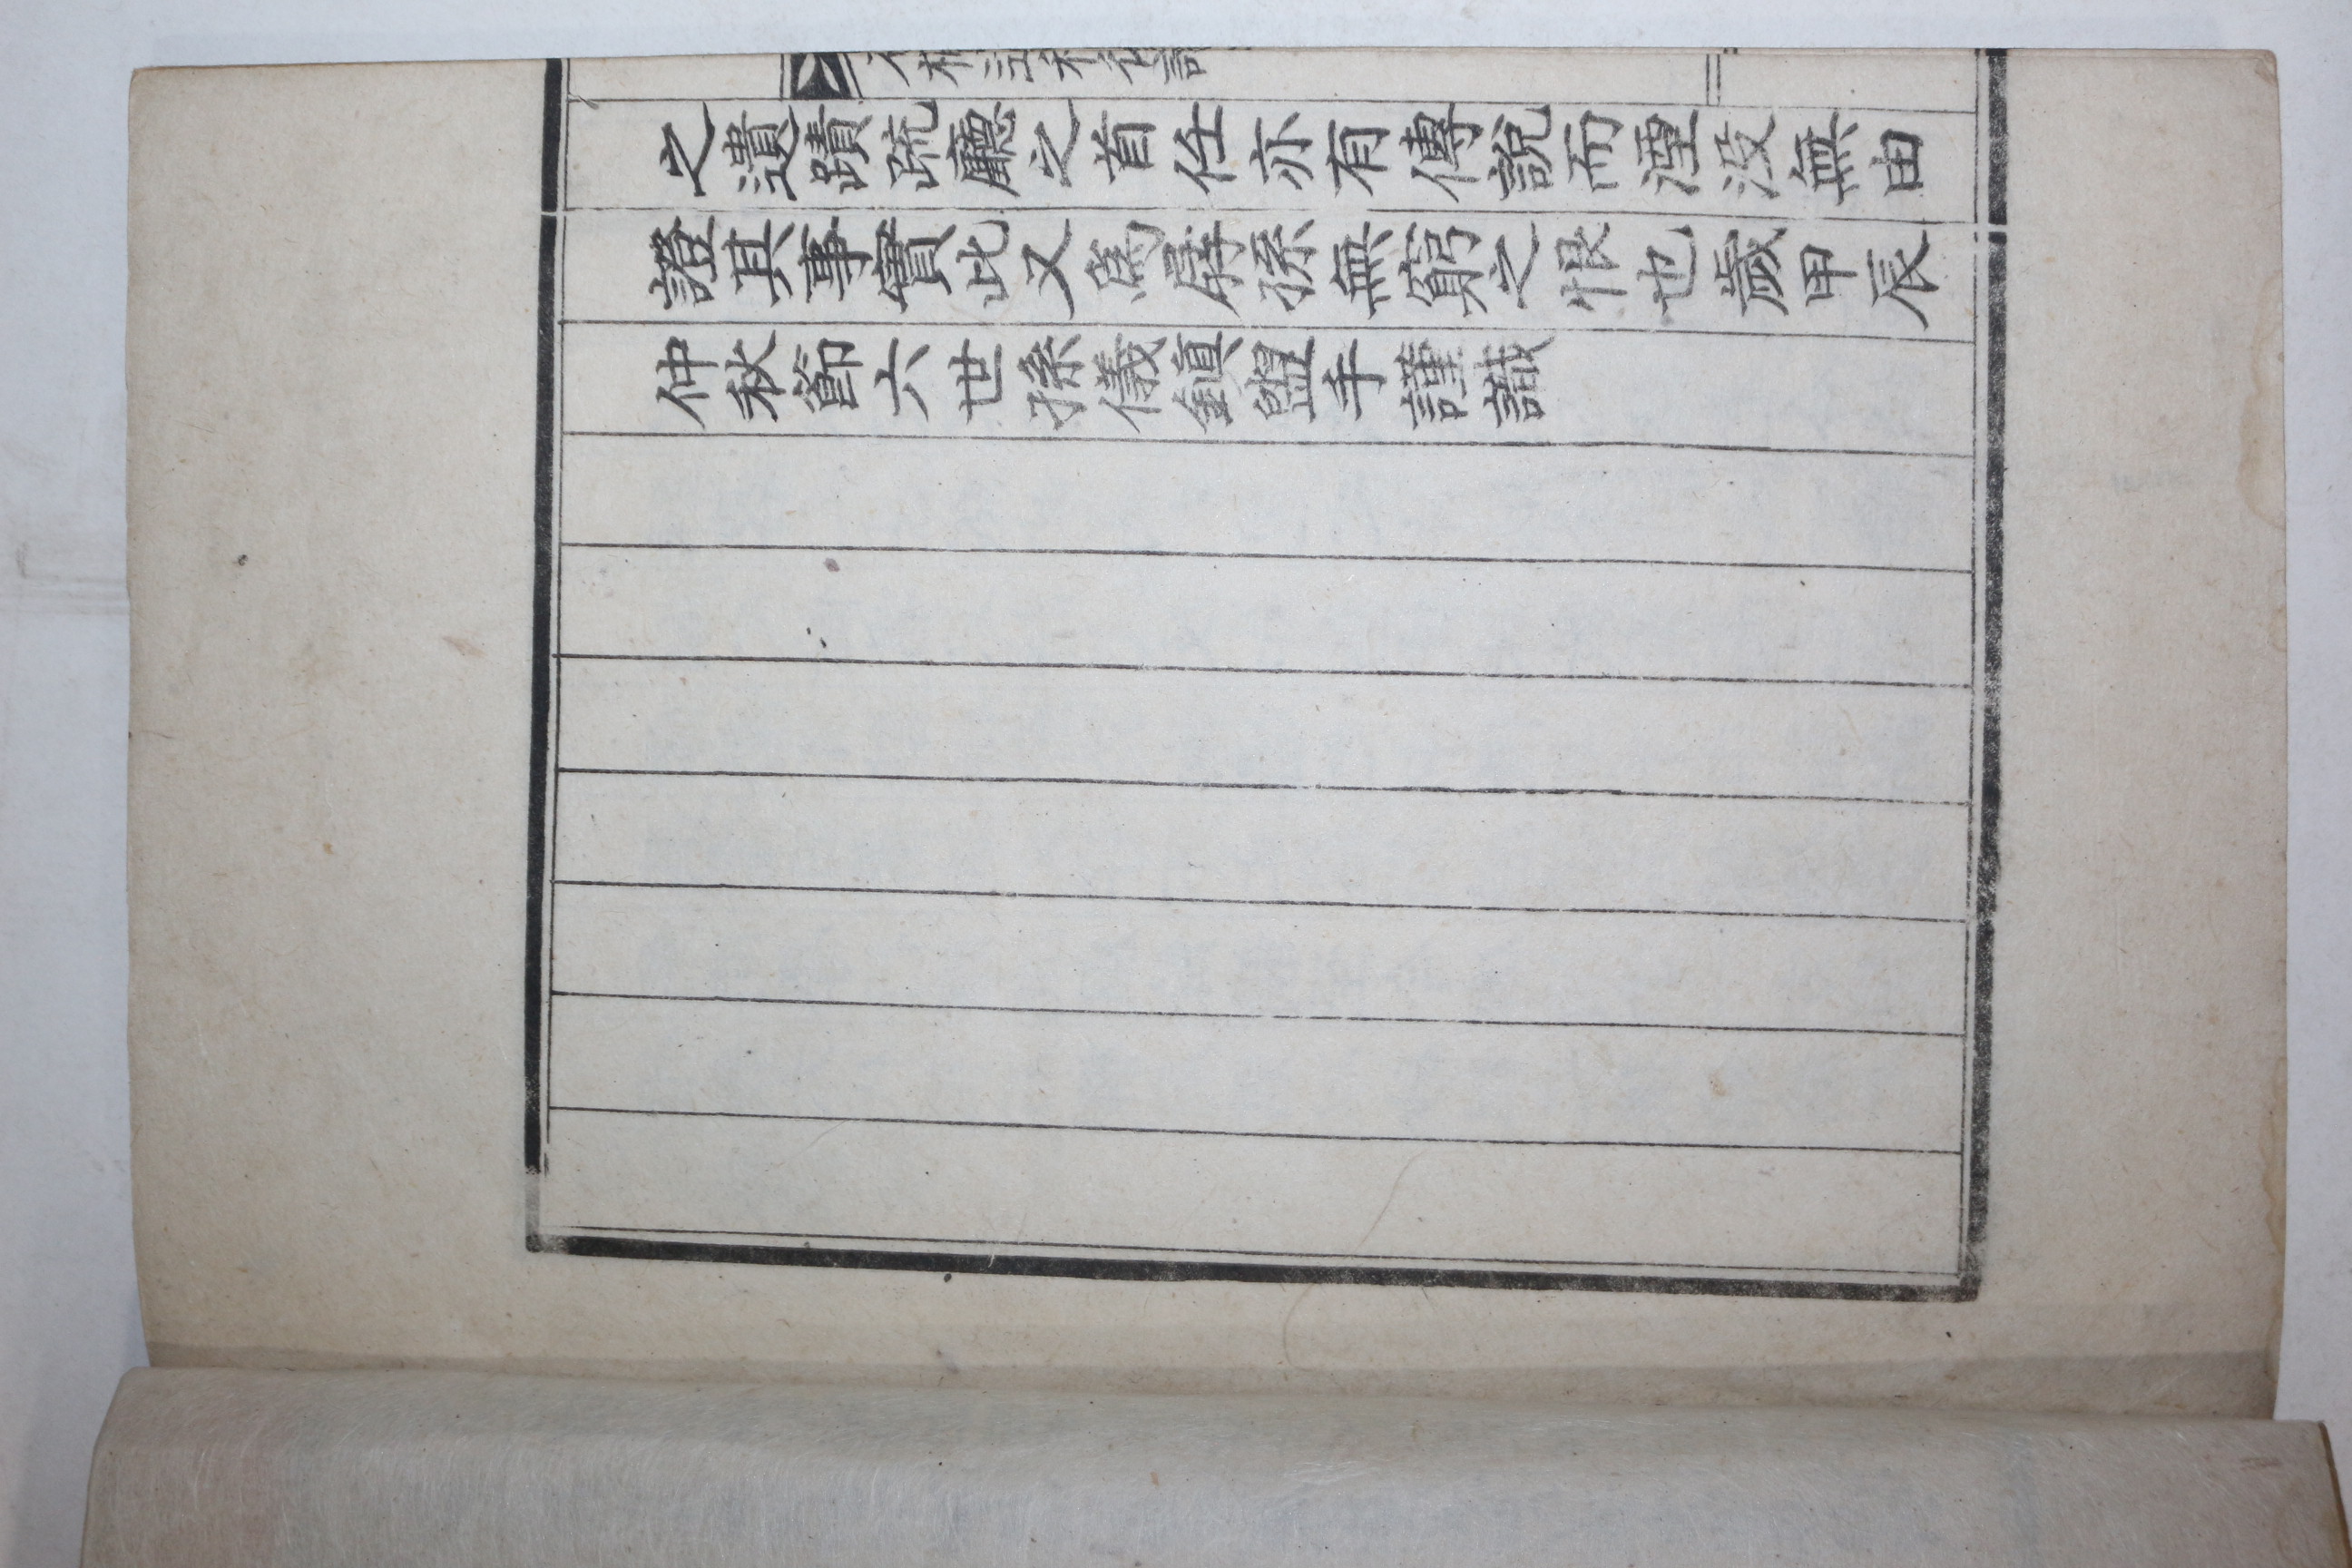 之遺蹟疏廳之首任亦有傳說而湮沒無由
證其事實此又爲孱孫無窮之恨也歲甲辰
仲秋節六世孫儀鎭盥手謹識